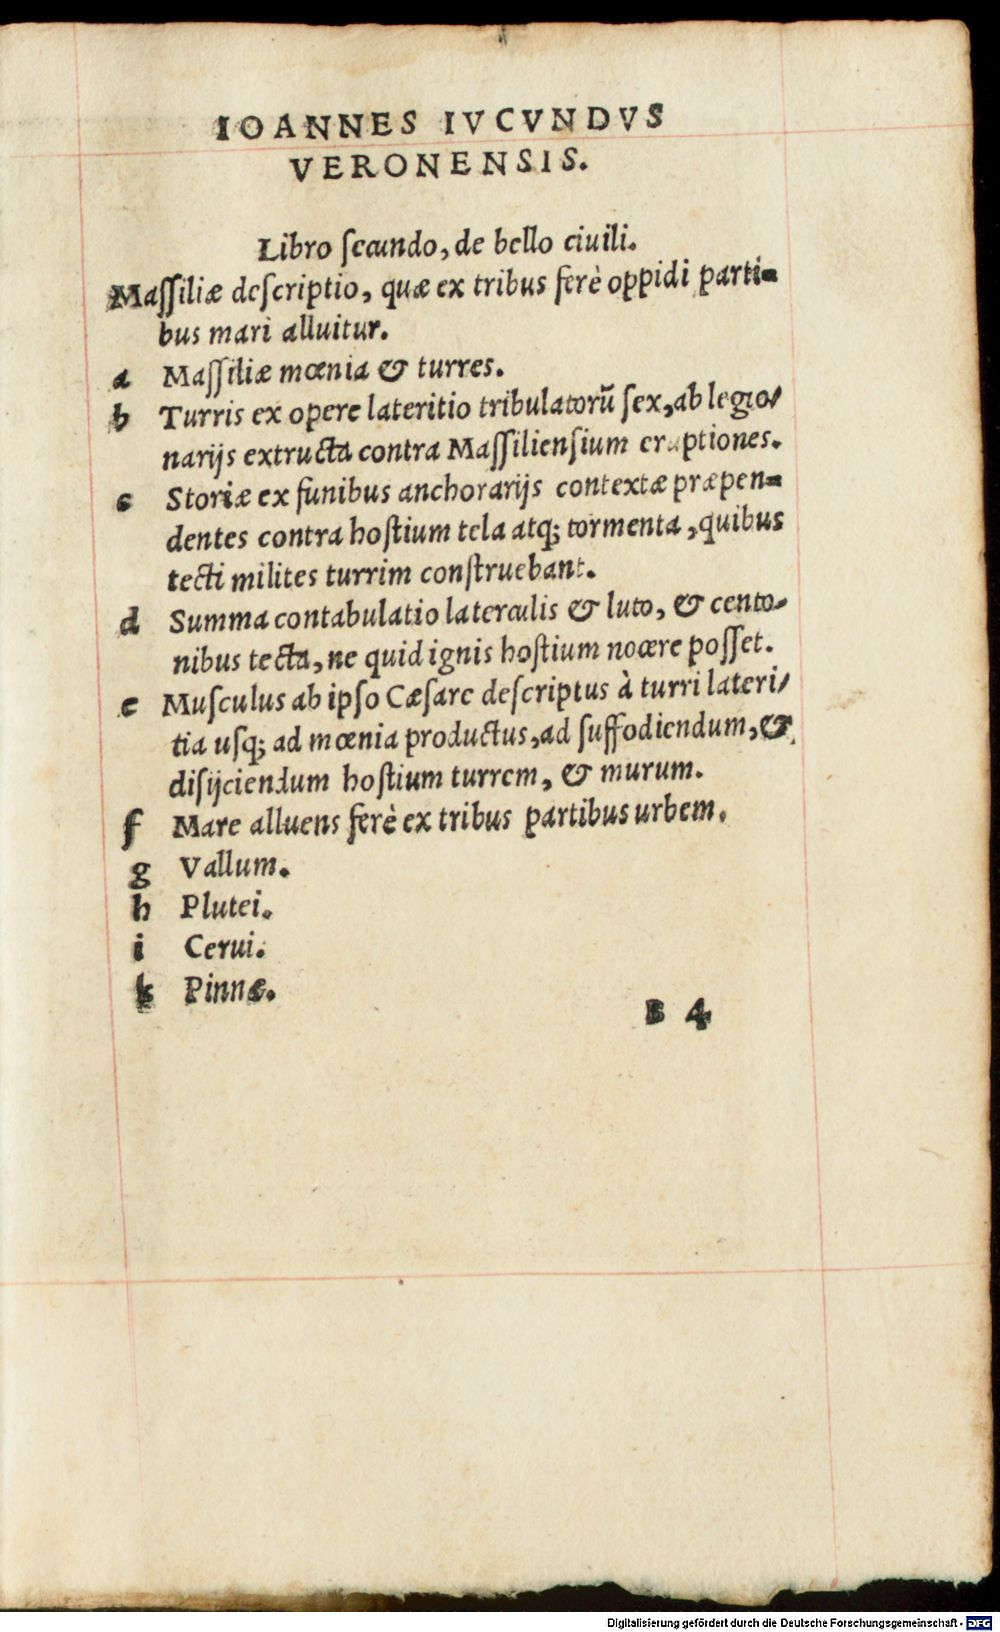 IOANNES IVCVNDVS
VERONENSIS.
Libro secundo, de bello ciuili.
Massiliæ descriptio, quæ ex tribus ferè oppidi parti-
bus mari alluitur.
a Massiliæ mœnia & turres.
b Turris ex opere lateritio tribulatorũ sex, ab legio-
narijs extructa contra Massiliensium eruptiones.
c Storiæ ex funibus anchorarijs contextæ præpen-
dentes contra hostium tela atq; tormenta, quibus
tecti milites turrim construebant.
d Summa contabulatio laterculis & luto, & cento-
nibus tecta, ne quid ignis hostium nocere posset.
e Musculus ab ipso Cæsare descriptus à turri lateri-
tia usq; ad mœnia productus, ad suffodiendum, &
disijciendum hostium turrem, & murum.
f Mare alluens ferè ex tribus partibus urbem.
g Vallum.
h Plutei.
i Cerui.
k Pinnæ.
B 4
Digitalisierung gefördert durch die Deutsche Forschungsgemeinschaft - DFG